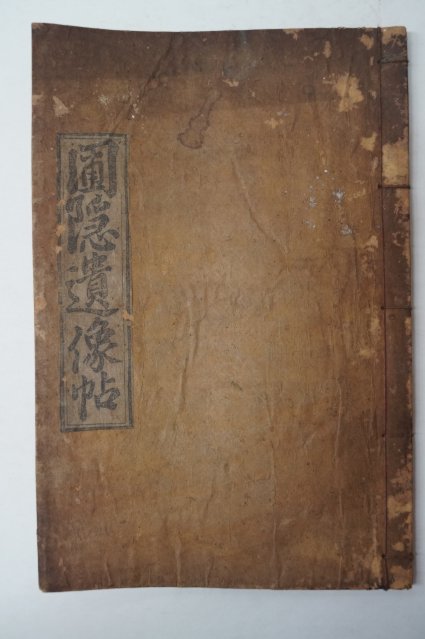 圃隱遺像帖